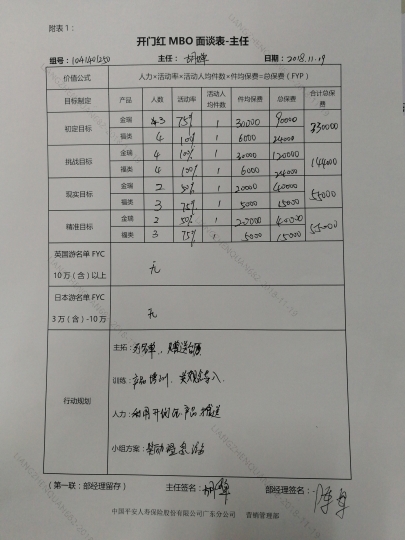 附表1：
开门红MBO面谈表-主任
组号：1041401250 主任：胡婵 日期：2018.11.19
价值公式 人力×活动率×活动人均件数×件均保费=总保费（FYP）
目标制定 产品 人数 活动率 活动人均件数 件均保费 总保费 合计总保费
初定目标 金瑞 3 75% 1 30000 90000
福类 4 10% 1 6000 24000
挑战目标 金瑞 4 10% 1 30000 120000 144000
福类 4 100% 1 6000 24000
现实目标 金瑞 2 50% 1 20000 40000 55000
福类 3 75% 1 5000 15000
精准目标 金瑞 2 50% 1 20000 40000 55000
福类 3 75% 1 5000 15000
英国游名单FYC
10万（含）以上 无
日本游名单FYC
3万（含）-10万 无
行动规划
主拓：列名单、
训练：产品培训、
人力：利用开门红产品增送
小组方案：
（第一联：部经理留存） 主任签名：胡婵 部经理签名：
中国平安人寿保险股份有限公司广东分公司 营销管理部